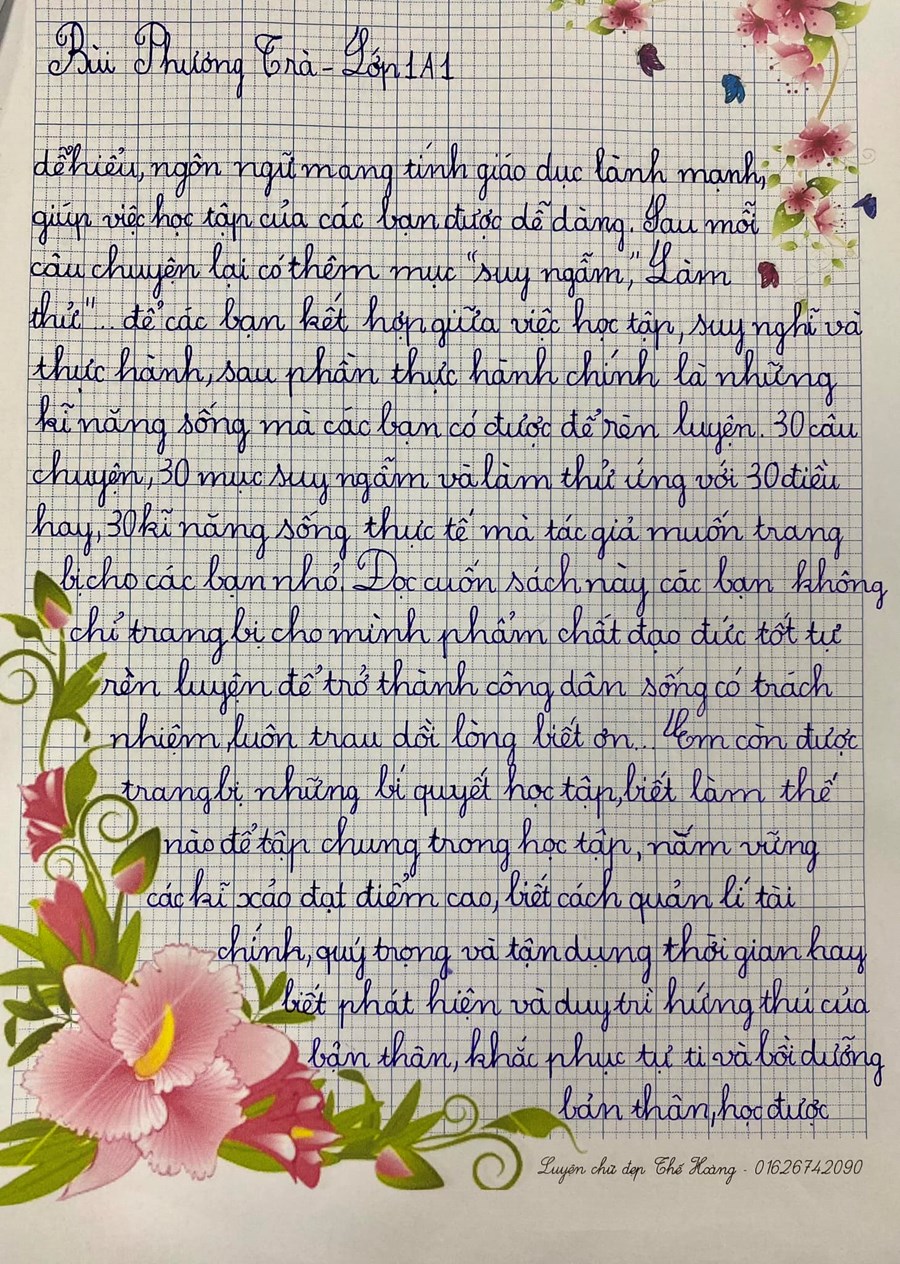 Bùi Phương Trà - Lớp 1A1
dễ hiểu, ngôn ngữ mang tính giáo dục lành mạnh,
giúp việc học tập của các bạn được dễ dàng. Sau mỗi
câu chuyện lại có thêm mục "suy ngẫm," Làm
thử"... để các bạn kết hợp giữa việc học tập, suy nghĩ và
thực hành, sau phần thực hành chính là những
kĩ năng sống mà các bạn có được để rèn luyện. 30 câu
chuyện, 30 mục suy ngẫm và làm thử ứng với 30 điều
hay, 30 kĩ năng sống thực tế mà tác giả muốn trang
bị cho các bạn nhỏ. Đọc cuốn sách này các bạn không
chỉ trang bị cho mình phẩm chất đạo đức tốt tự
rèn luyện để trở thành công dân sống có trách
nhiệm, luôn trau dồi lòng biết ơn... Em còn được
trang bị những bí quyết học tập, biết làm thế
nào để tập chung trong học tập, nắm vững
các kĩ xảo đạt điểm cao, biết cách quản lí tài
chính, quý trọng và tận dụng thời gian hay
biết phát hiện và duy trì hứng thú của
bản thân, khắc phục tự ti và bồi dưỡng
bản thân, học được
Luyện chữ đẹp Thế Hoàng - 01626742090